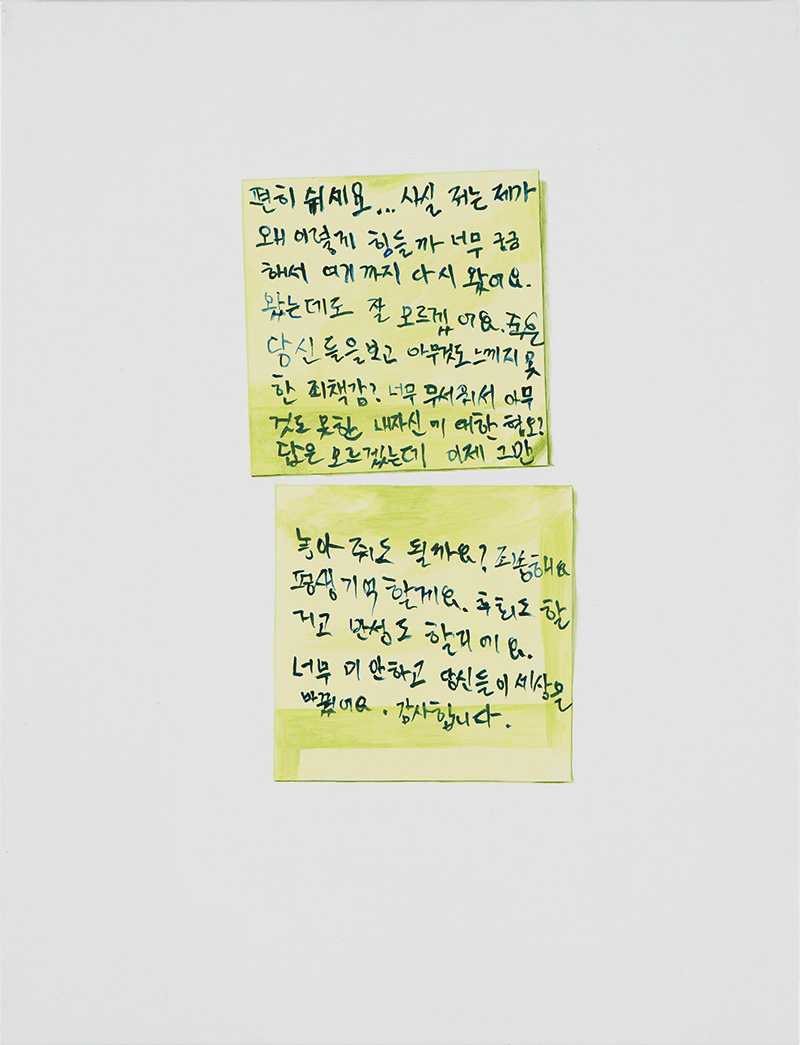 편히 쉬세요... 사실 저는 제가
왜 이렇게 힘들까 너무 궁금
해서 여기까지 다시 왔어요.
왔는데도 잘 모르겠어요. 죽은
당신들을보고 아무것도 느끼지 못
한 죄책감? 너무 무서워서 아무
것도 못한 내자신에 대한 혐오?
답은 모르겠는데 이제 그만
놓아 줘도 될까요? 죄송해요
평생 기억 할게요. 후회도 할
거고 반성도 할거에요.
너무 미안하고 당신들이 세상을
바꿨어요. 감사합니다.